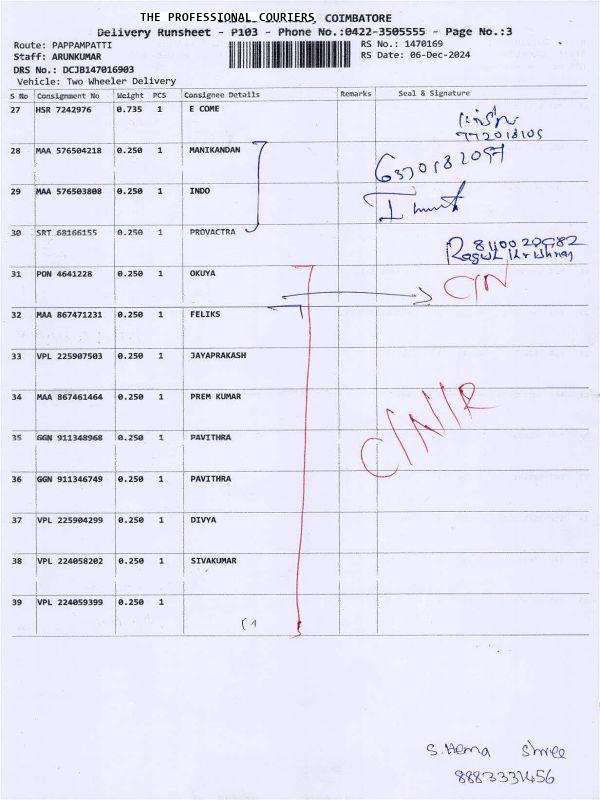 THE PROFESSIONAL COURIERS, COIMBATORE
Delivery Runsheet - P103 - Phone No.:0422-3505555 - Page No.:3
Route: PAPPAMPATTI
RS No.: 1470169
Staff: ARUNKUMAR
RS Date: 06-Dec-2024
DRS No.: DCJB147016903
Vehicle: Two Wheeler Delivery
S No Consignment No Weight PCS Consignee Details Remarks Seal & Signature
27 HSR 7242976 0.735 1 E COME
772018105
28 MAA 576504218 0.250 1 MANIKANDAN
29 MAA 576503808 0.250 1 INDO
30 SRT 68166155 0.250 1 PROVACTRA
31 PON 4641228 0.250 1 OKUYA C/N
32 MAA 867471231 0.250 1 FELIKS
33 VPL 225907503 0.250 1 JAYAPRAKASH
34 MAA 867461464 0.250 1 PREM KUMAR
C/N/R
35 GGN 911348968 0.250 1 PAVITHRA
36 GGN 911346749 0.250 1 PAVITHRA
37 VPL 225904299 0.250 1 DIVYA
38 VPL 224058202 0.250 1 SIVAKUMAR
39 VPL 224059399 0.250 1
S.Hema Shree
8883331456